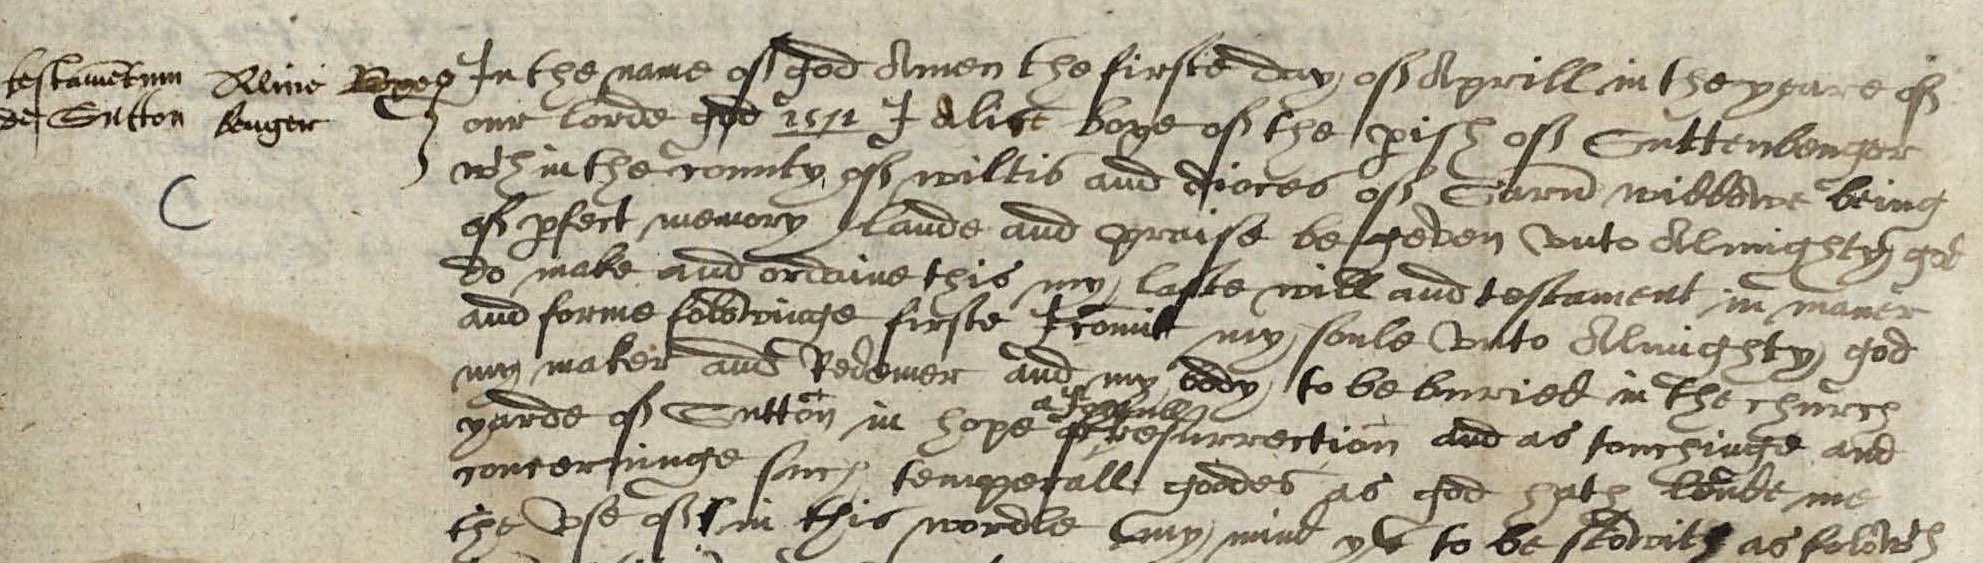 testamentum Alicie Boye
de Sutton benger
In the name of god Amen the firste day of Aprill in the yeare of
our lorde god 1571 I Alice boye of the pish of Suttenbenger
wth in the county of wiltis and dioces of Sarū widdowe being
of pfect memory laude and praise be geven vnto Almighty god
do make and ordaine this my laste will and testament in maner
and forme folowinge firste I comit my soule vnto Almighty god
my maker and Redemer and my body to be buried in the church
yarde of Sutton in hope of a Ioyfull resurrection and as touchinge and
concerninge such temperall goodes as god hath lende me
the vse of in this wordle my mind ys to be as foloweth